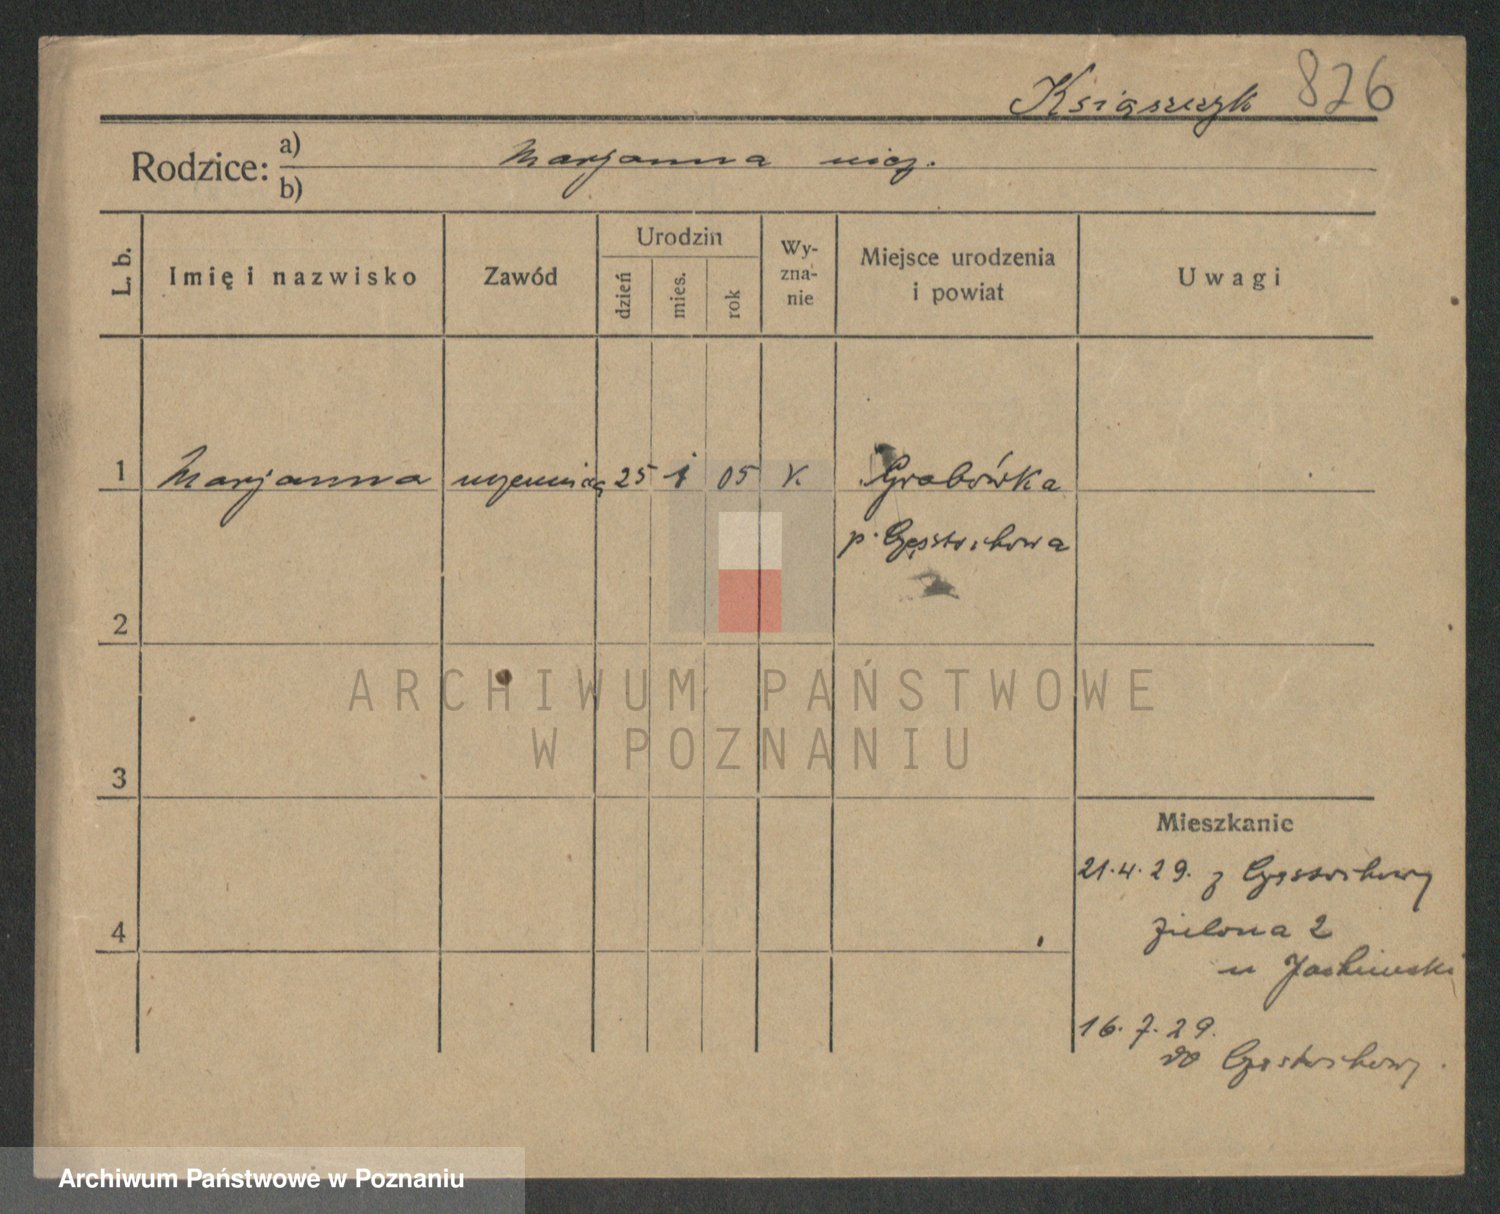 Książczyk 826
Rodzice: a) Marjanna niez.
b)
L. b.
Imię i nazwisko
Zawód
Urodzin
dzień
mies.
rok
Wy-
zna-
nie
Miejsce urodzenia
i powiat
Uwagi
1 Marjanna uczennica 25 1 05 k. Grabówka
p. Częstochowa
2
ARCHIWUM PAŃSTWOWE
W POZNANIU
3
Mieszkanie
21.4.29. z Częstochowy
4
Zielona 2
u
16.7.29.
do Częstochowy.
Archiwum Państwowe w Poznaniu